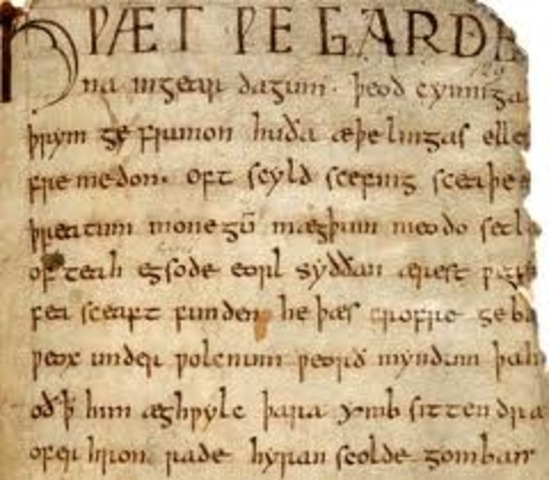 HǷÆT ǷE GARDE
na ingear dagum. þeod cyninga
þrym ge frunon huða æþelingas elle
fre medon. oft scyld scefing sceaþe
þreatum monegū mægþum meodo setla
of teah egsode eorl syððan ærest ƿær
fea sceaft funden he þæs frofre geba
ƿeox under ƿolcnum ƿeorð myndum þah
oð ꝥ him æghƿylc þara ymb sittendra
ofer hron rade hyran scolde gomban